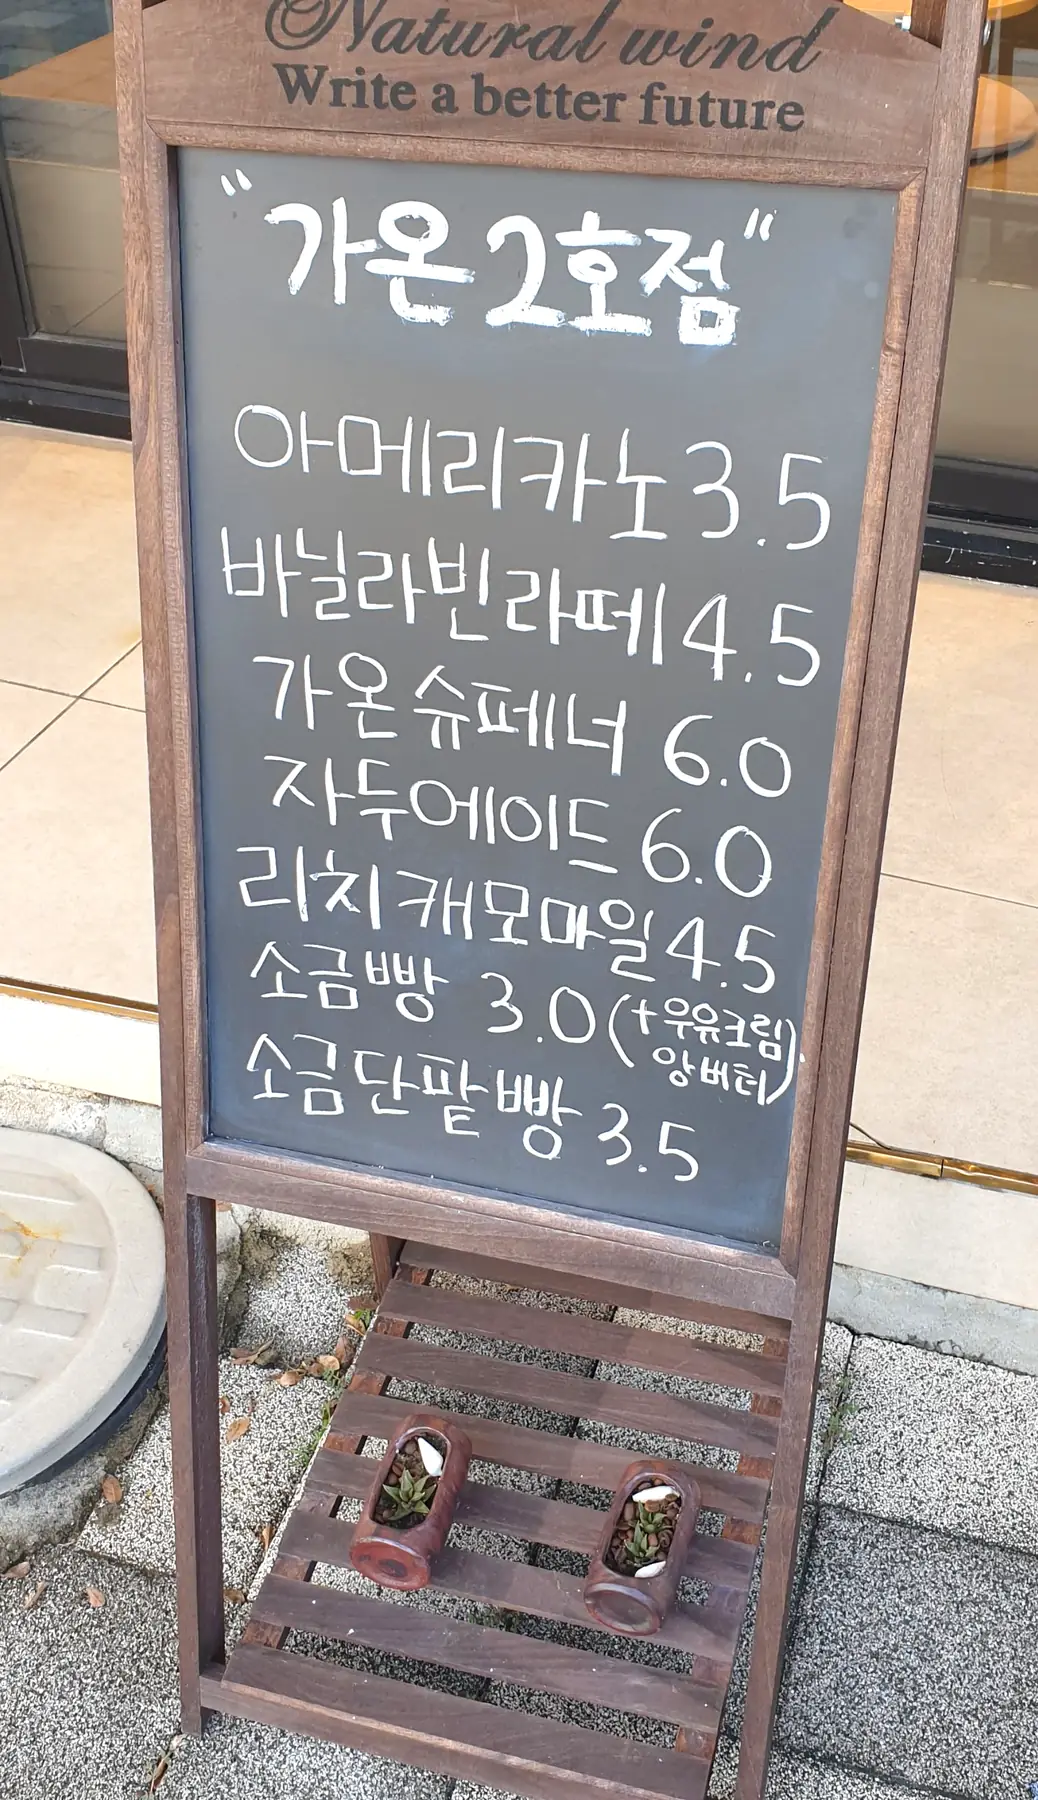 Natural wind
Write a better future
"가온 2호점"
아메리카노 3.5
바닐라빈 라떼 4.5
가온 슈페너 6.0
자두에이드 6.0
리치 캐모마일 4.5
소금빵 3.0 (+우유크림
앙버터)
소금 단팥빵 3.5